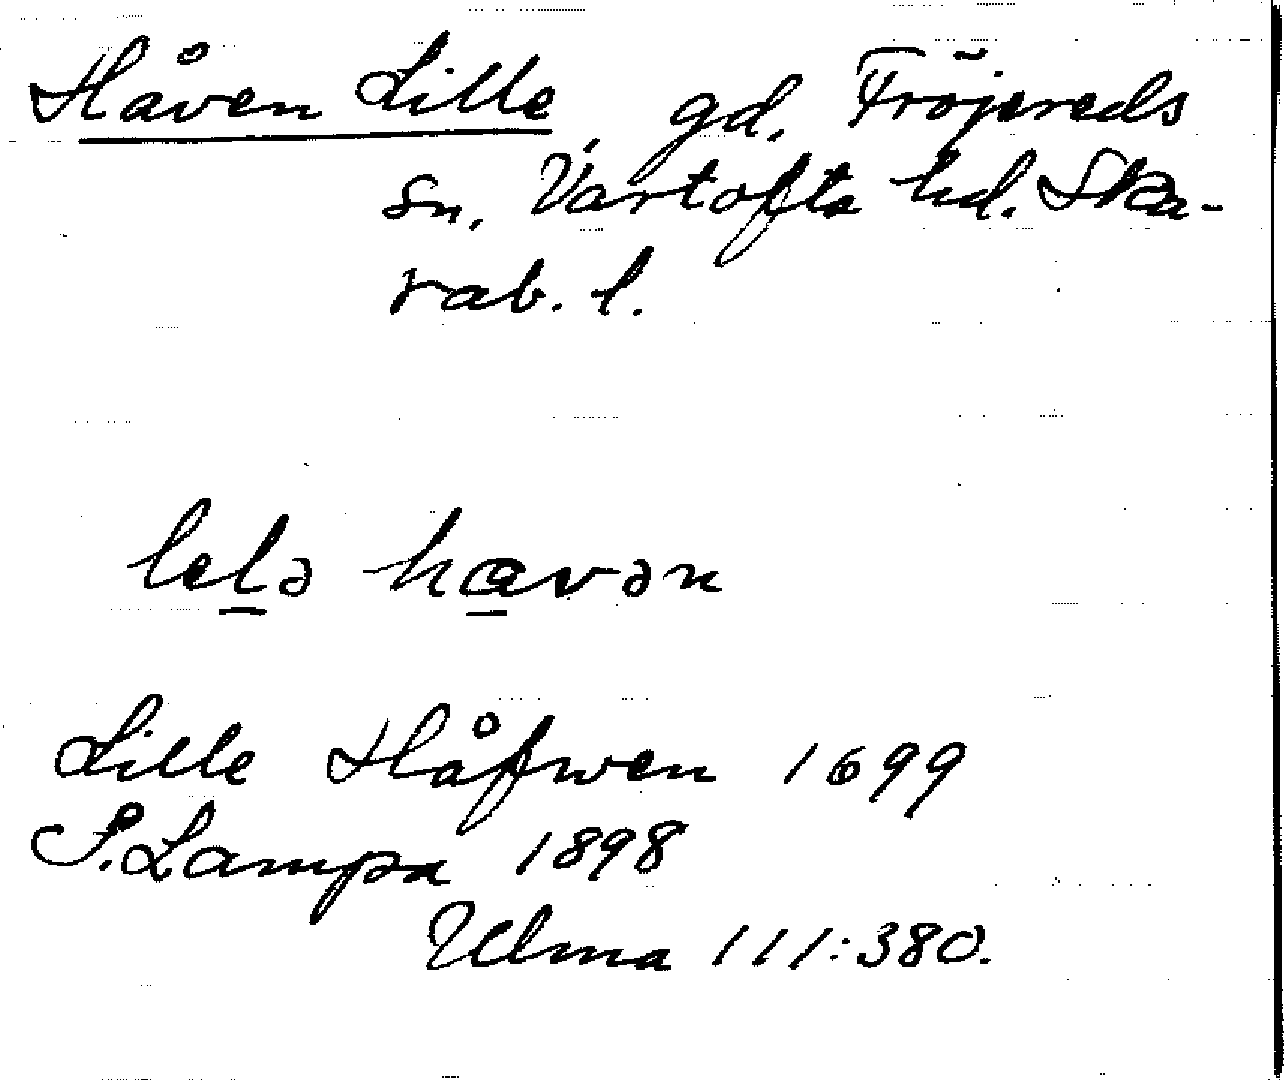 Håven Lille, gd. Fröjereds
sn. Vartofta hd. Ska-
rab. l.
lelə havən
Lille Håfwen 1699
S. Lampa 1898
Ulma 111:380.